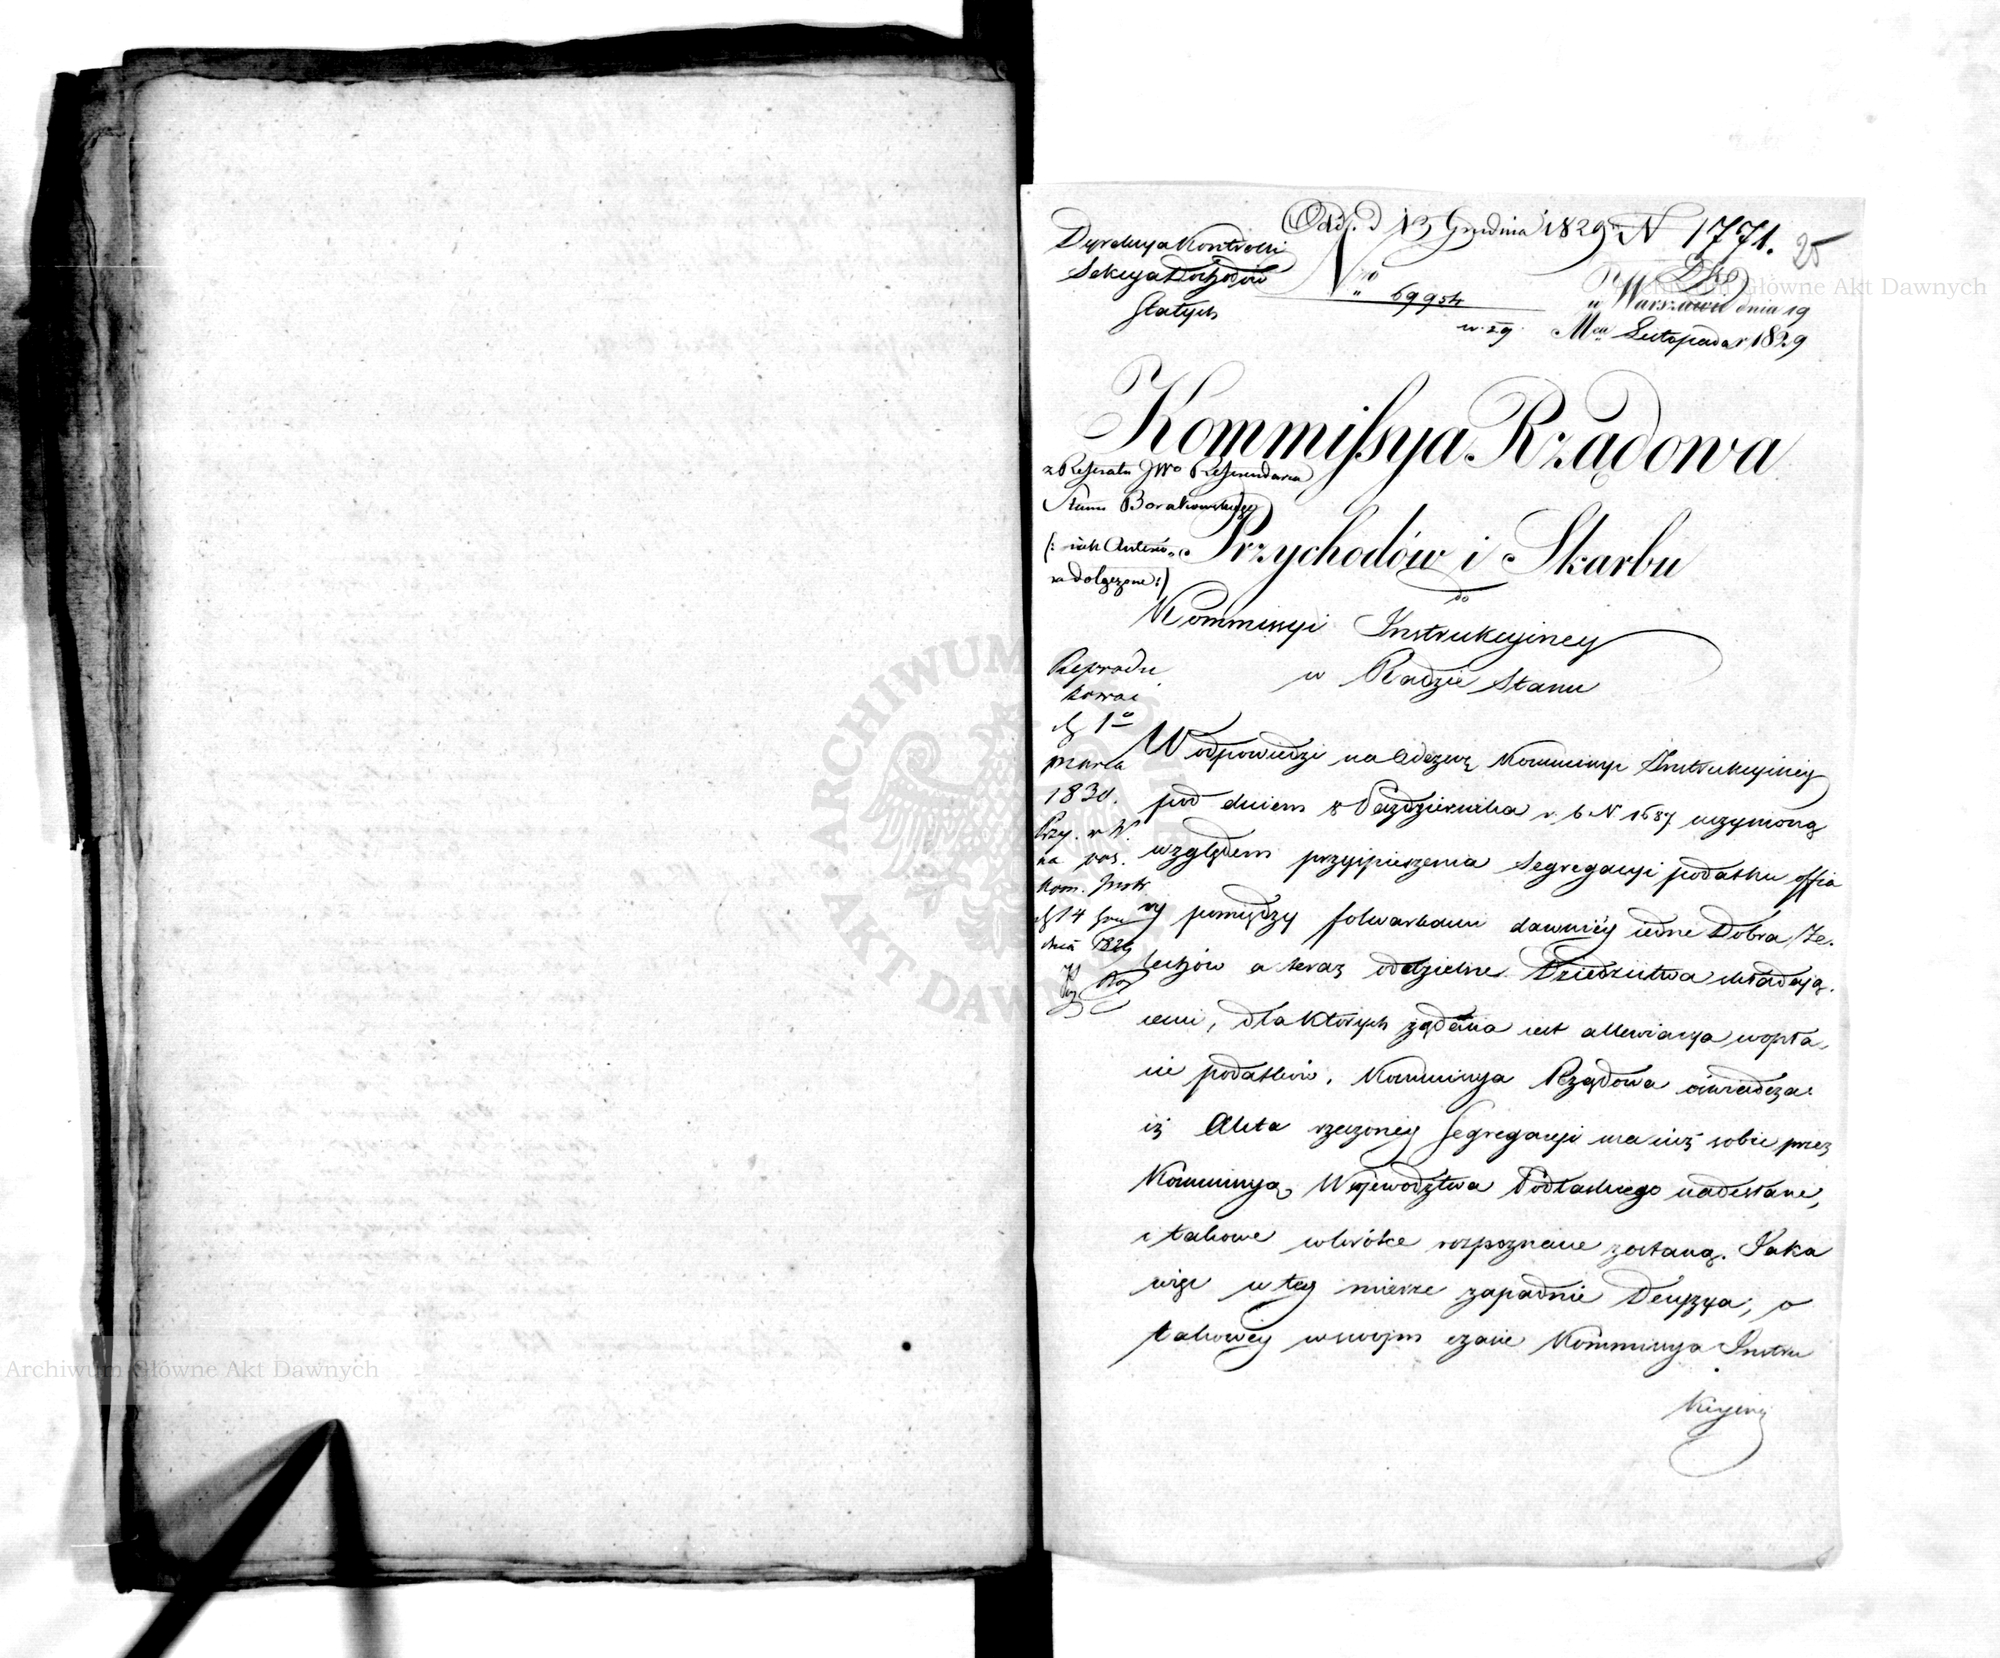 Odb. d. 13 Grudnia 1829 N 1771.
25
Dyrekcya Kontrolli
Sekcya Dochodów
Stałych
Nro 69954
w. 29.
w Warszawie dnia 19
Mca Listopada r 1829
Kommissya Rządowa
z Referatu JWo Referendarza
Stanu Borakowskiego
Przychodów i Skarbu
do
Kommissyi Instrukcyiney
w Radzie Stanu
Reprodu
kować
d. 1o
Marca
1830.
Kom. Instr
d 14 Gru
dnia 1829
W odpowiedzi na Odezwę Kommissyi Instrukcyiney
pod dniem 8 Października r. b. N. 1687 uczynioną
względem przyspieszenia Segregacyi podatku offia
ry pomiędzy folwarkami dawniéy iedne Dobra Że-
lechów a teraz oddzielne Dziedzictwa składaią-
cemi, dla których żądana iest allewiacya w opła-
cie podatków, Kommissya Rządowa oświadcza
iż Akta rzeczoney Segregacyi ma iuż sobie przez
Kommissyą Woiewództwa Podlaskiego nadesłane,
i takowe wkrótce rozpoznane zostaną. Jaka
więc w tey mierze zapadnie Decyzya, o
takowéy w swoim czasie Kommissya Instru
kcyiną
Archiwum Główne Akt Dawnych
Archiwum Główne Akt Dawnych
ARCHIWUM GŁÓWNE AKT DAWNYCH